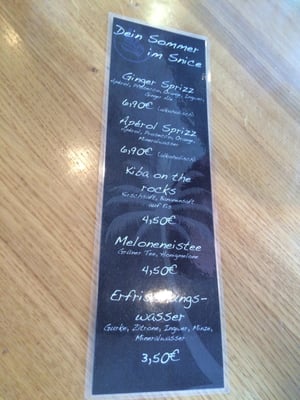 Dein Sommer
im Snice
Ginger Sprizz
Aperol, Prosecco, Orange, Ingwer,
Ginger Ale
6,90€ (alkoholisch)
Aperol Sprizz
Aperol, Prosecco, Orange,
Mineralwasser
6,90€ (alkoholisch)
Kiba on the
rocks
Kirschsaft, Bananensaft
auf Eis
4,50€
Meloneneistee
Grüner Tee, Honigmelone
4,50€
Erfrischungs-
wasser
Gurke, Zitrone, Ingwer, Minze,
Mineralwasser
3,50€